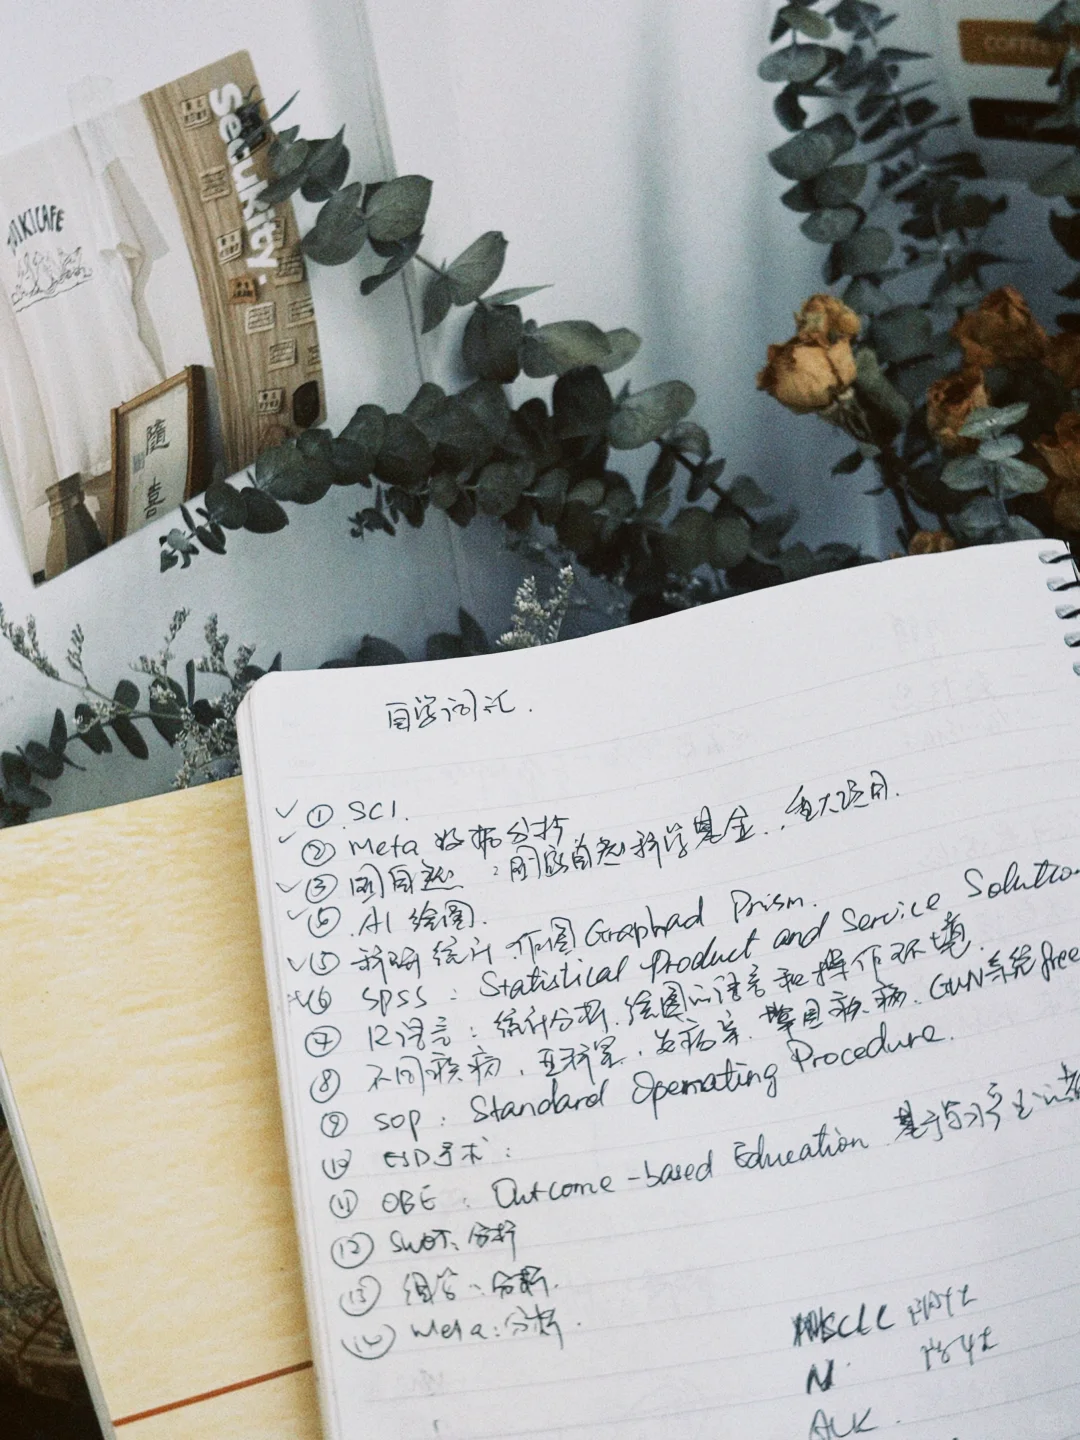 COFFEE
Security.
WIKICAFE
隨
意
自学词汇.
① SCI.
② Meta 数据分析
③ 国自然：国家自然科学基金., 重大项目.
④ AI 绘图.
⑤ 科研统计.作图 Graphpad Prism.
⑥ SPSS : Statistical Product and Service Solutio
⑦ R语言：统计分析.绘图的语言和操作环境. GUN系统free
⑧ 不同疾病,亚科室,发病率.常见疾病.
⑨ SOP : Standard Operating Procedure.
⑩ ESD手术:
⑪ OBE : Outcome-based Education 基于学习产出的教
⑫ SWOT: 分析
⑬ 组学:分析.
⑭ Meta:分析.
NSCLC
N
ALK.